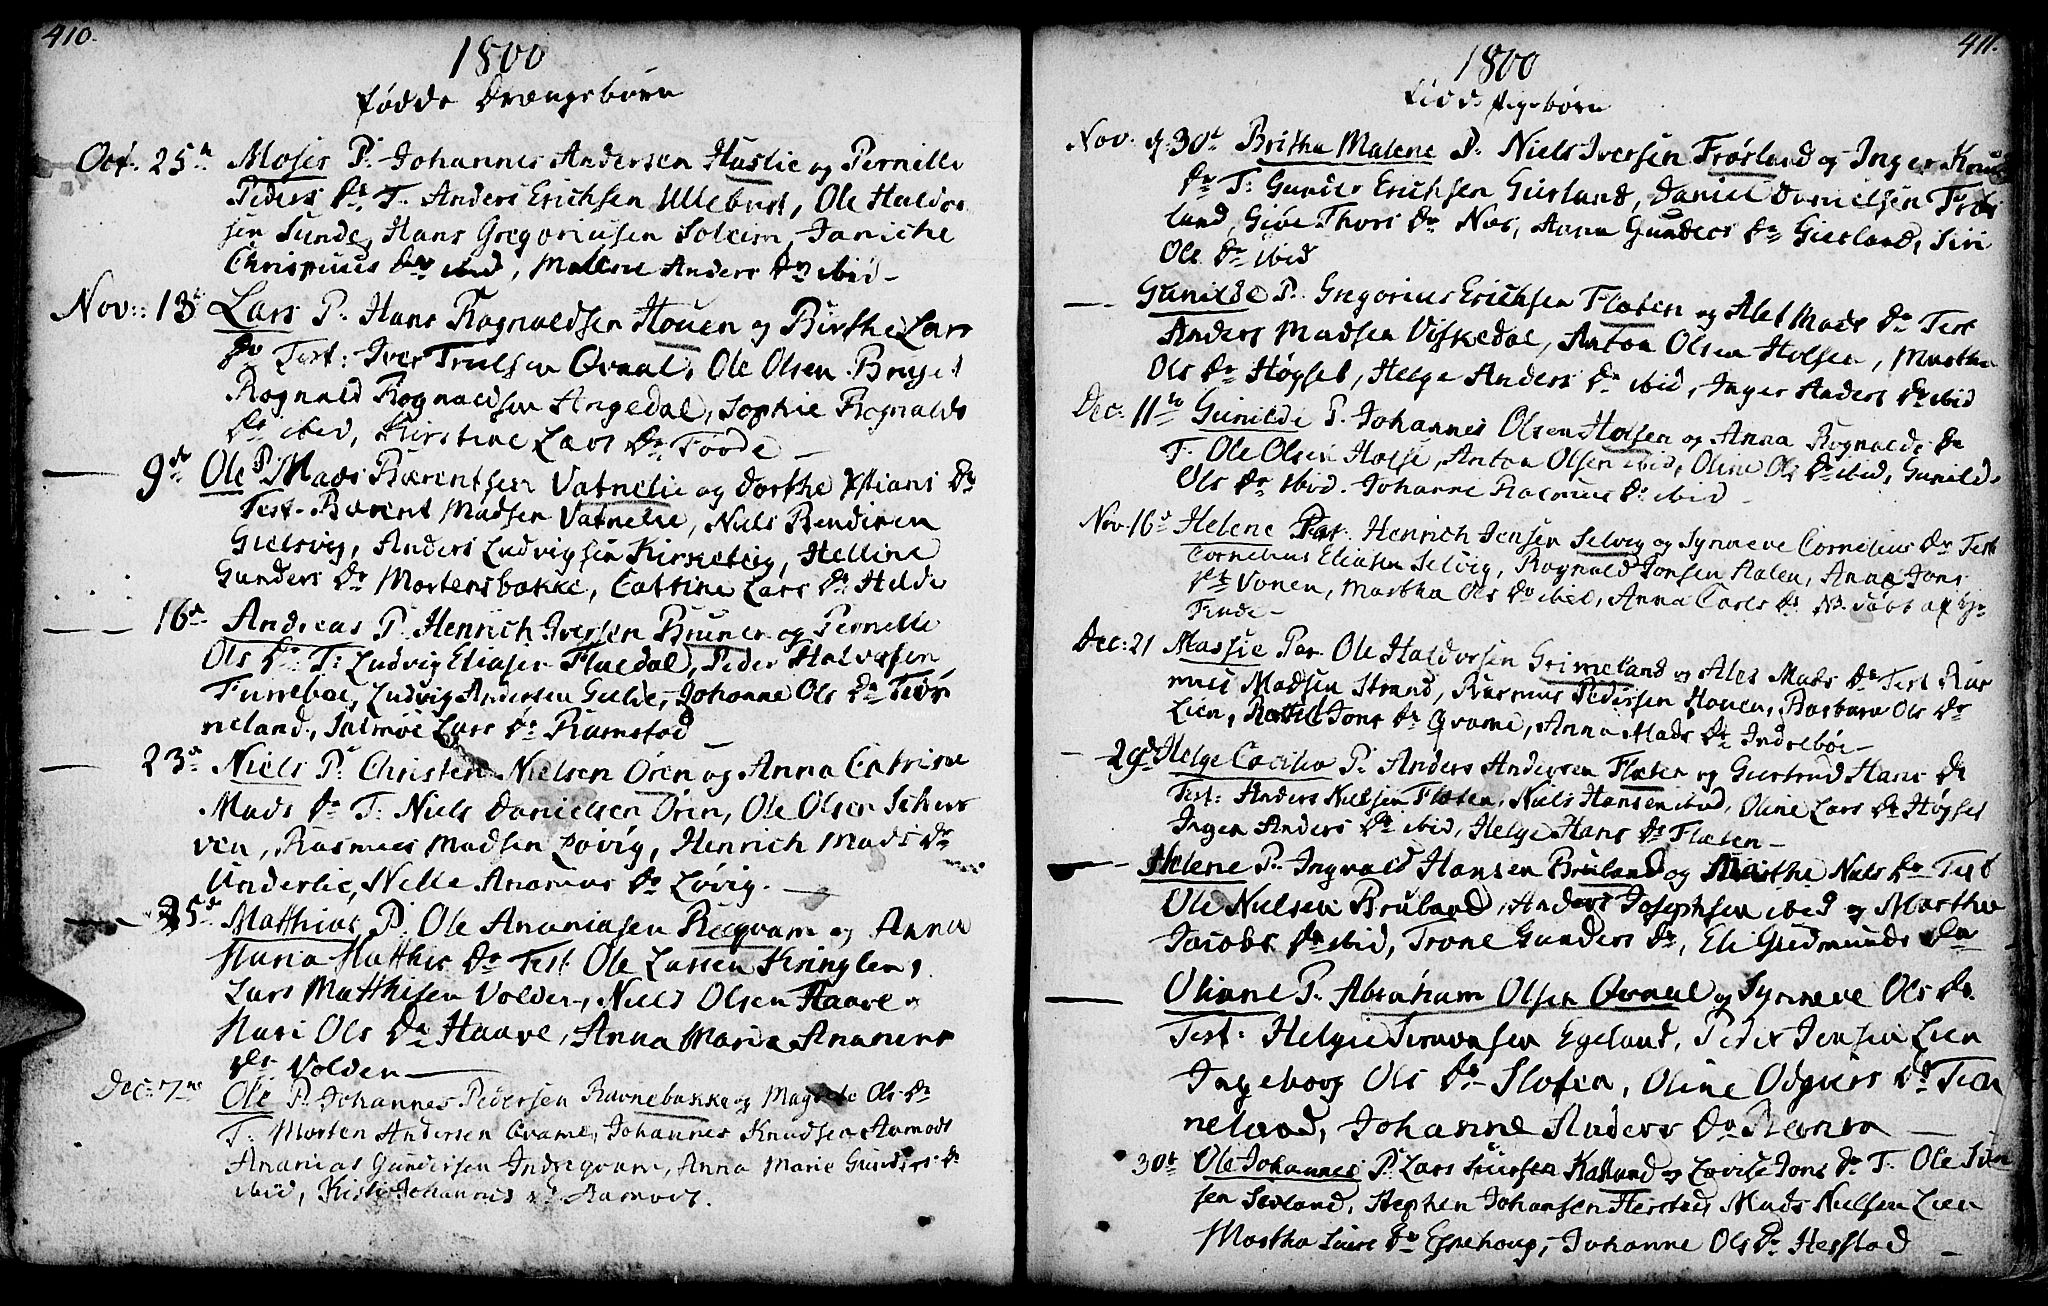 410.
1800
fødde Drængebørn
Oct. 25de Moses P. Johannes Andersen Huslie og Pernille
Peders Dr. T. Anders Erichsen Ullebust, Ole Haldor
sen Sunde, Hans Gregoriusen Soleim, Janiche
Dr ibid, Malene Anders Dr ibid –
Nov: 13 Lars P. Hans Rognaldsen Houen og Birthe Lars
Dr Test: Iver Trulsen Qvaal, Ole Olsen
Rognald Rognaldsen Angedal, Sophie Rognalds
Dr ibid, Kirstine Lars Dr Førde –
— 9de Ole P. Mads Bærentsen Vatnelie og Dorthe Xstians Dr
Test. Bærent Madsen Vatnelie, Niels
Gielsvig, Anders Ludvigsen Kirketeig, Helline
Gunders Dr Mortensbakke, Cattrine Lars Dr Halde
— 16de Andreas P. Henrich Iversen Bruner og Pernille
Ols Dr. T: Ludvig Eliasen Flaedal, Peder Halvorsen
Funnebøe, Ludvig Andersen Gulde, Johanne Ols Dr
neland, Salmøe Lars Dr Ramstad
— 23de Niels P. Christen Nielsen Øren og Anna Catrine
Mads Dr T: Niels Danielsen Øren, Ole Olsen
ven, Rasmus Madsen Løvig, Henrich Mads Dr
Underlie, Nille Ananias Dr Løvig. —
— 25de Matthias P. Ole Ananiasen Reeqvam og Anna
Maria Matthis Dr Test Ole Larsen Kringlen,
Lars Matthisen Volden, Niels Olsen Haave
Mari Ols Dr Haave, Anna Maria Ananias
Dr Volden —
Dec: 7me Ole P. Johannes Pedersen Ravnebakke og Magrete Ols Dr
T: Morten Andersen Qvame, Johannes Knudsen Aamodt
Ananias Gundersen Indreqvam, Anna Marie Gunders Dr
ibid, Kisti Johannes Dr Aamodt.
411.
1800
fødde Pigebørn
Nov. d. 30t Britha Malene P. Niels Iversen Frøsland og Inger Knuds
Dr T: Gunder Erichsen Gierland, Daniel Danielsen Frøs
land, Giøe Thors Dr Næs, Anna Gunders Dr Gierland, Siri
Ole Dr ibid
— Gunilde P. Gregorius Erichsen Flaten og Alet Mads Dr Test
Anders Madsen Viskedal, Anton Olsen Holsen, Martha
Ols Dr Høgset, Helge Anders Dr ibid, Inger Anders Dr ibid
Dec: 11te Gunilde P. Johannes Olsen Holsen og Anna Rognalds Dr
T. Ole Olsen Holse, Anton Olsen ibid, Oline Ols Dr ibid, Gunilde
Ols Dr ibid. Johanne Rasmus Dr ibid –
Nov. 16d Helene Par. Henrich Jensen Selvig og Synneve Cornelius Dr Test
Cornelius Eliasen Selvig, Rognald Jonsen Aalen, Anna Jons
Dr Vonen, Martha Ols Dr ibid, Anna Carls Dr NB døbt af
Finde –
Dec: 21 Massie Par. Ole Haldorsen Grimeland og Ales Mads Dr Test Ras
mus Madsen Strand, Rasmus Pedersen Houen, Barbara Ols Dr
Lien, Jons Dr Qvame, Anna Mads Dr Indrebøe –
— 29d Helge Cecilia P. Anders Andersen Flaten og Giertrud Hans Dr
Test: Anders Nielsen Flaten, Niels Hansen ibid, Oline Lars Dr Høgset
Inger Anders Dr ibid, Helge Hans Dr Flaten –
— Helene P. Ingvald Hansen Bruland og Marthe Niels Dr Test
Ole Nielsen Bruland, Anders Josephsen ibid og Martha
Jacobs Dr ibid, Trone Gunders Dr, Eli Gudmunds Dr
— Oliane P. Abraham Olsen Qvaal og Synneve Ols Dr.
Test: Helgie Simonsen Egeland, Peder Jensen Lien
Ingeborg Ols Dr Slaten, Oline Odgiers Dr Tion
neland, Johanne Anders Dr —
30t Ole Johannes P. Lars Siursen Kalland og Lovise Jons Dr T. Ole Siur
sen Sexland, Stephen Johansen Herstad, Mads Nielsen Lien
Martha Siurs Dr Espehoug, Johanne Ols Dr Herstad –